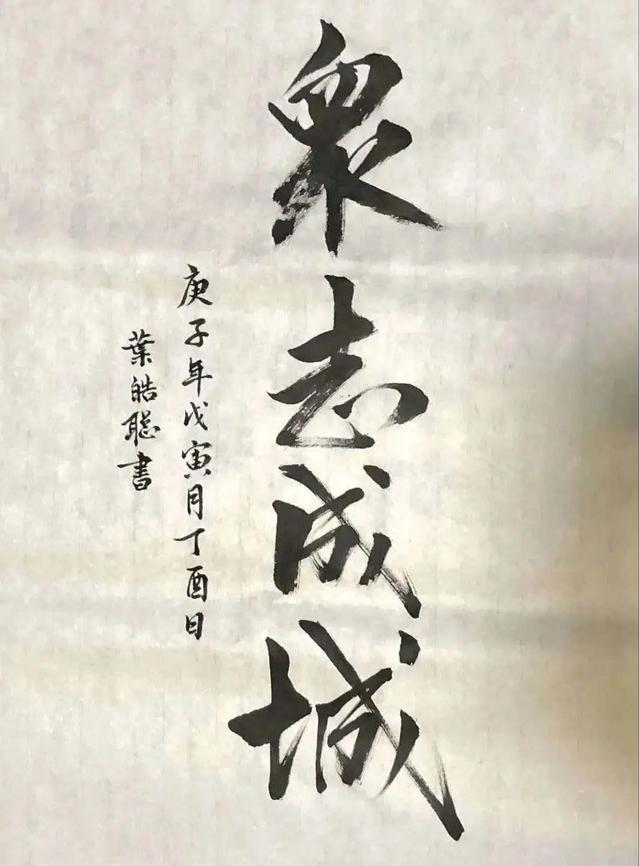 眾志成城
庚子年戊寅月丁酉日
葉皓聪書